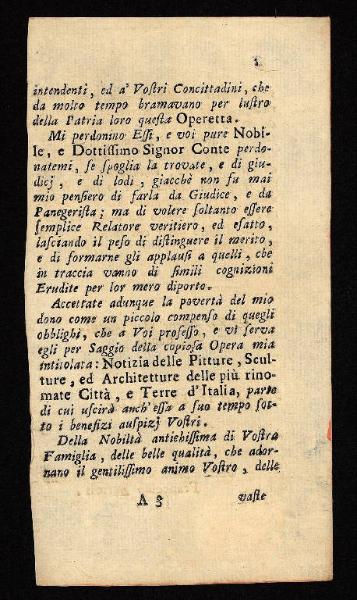 intendenti, ed a' Vostri Concittadini, che
da molto tempo bramavano per lustro
della Patria loro questa Operetta.
Mi perdonino Essi, e voi pure Nobi-
le, e Dottissimo Signor Conte perdo-
natemi, se spoglia la trovate, e di giu-
dicj, e di lodi, giacchè non fu mai
mio pensiero di farla da Giudice, e da
Panegerista; ma di volere soltanto essere
semplice Relatore veritiero, ed esatto,
lasciando il peso di distinguere il merito,
e di formarne gli applausi a quelli, che
in traccia vanno di simili cognizioni
Erudite per lor mero diporto.
Accettate adunque la povertà del mio
dono come un piccolo compenso di quegli
obblighi, che a Voi professo, e vi serva
egli per Saggio della copiosa Opera mia
intitolata: Notizia delle Pitture, Scul-
ture, ed Architetture delle più rino-
mate Città, e Terre d'Italia, parte
di cui uscirà anch'essa a suo tempo sot-
to i benefizi auspizj Vostri.
Della Nobiltà antichissima di Vostra
Famiglia, delle belle qualità, che ador-
nano il gentilissimo animo Vostro, delle
A 3 vaste